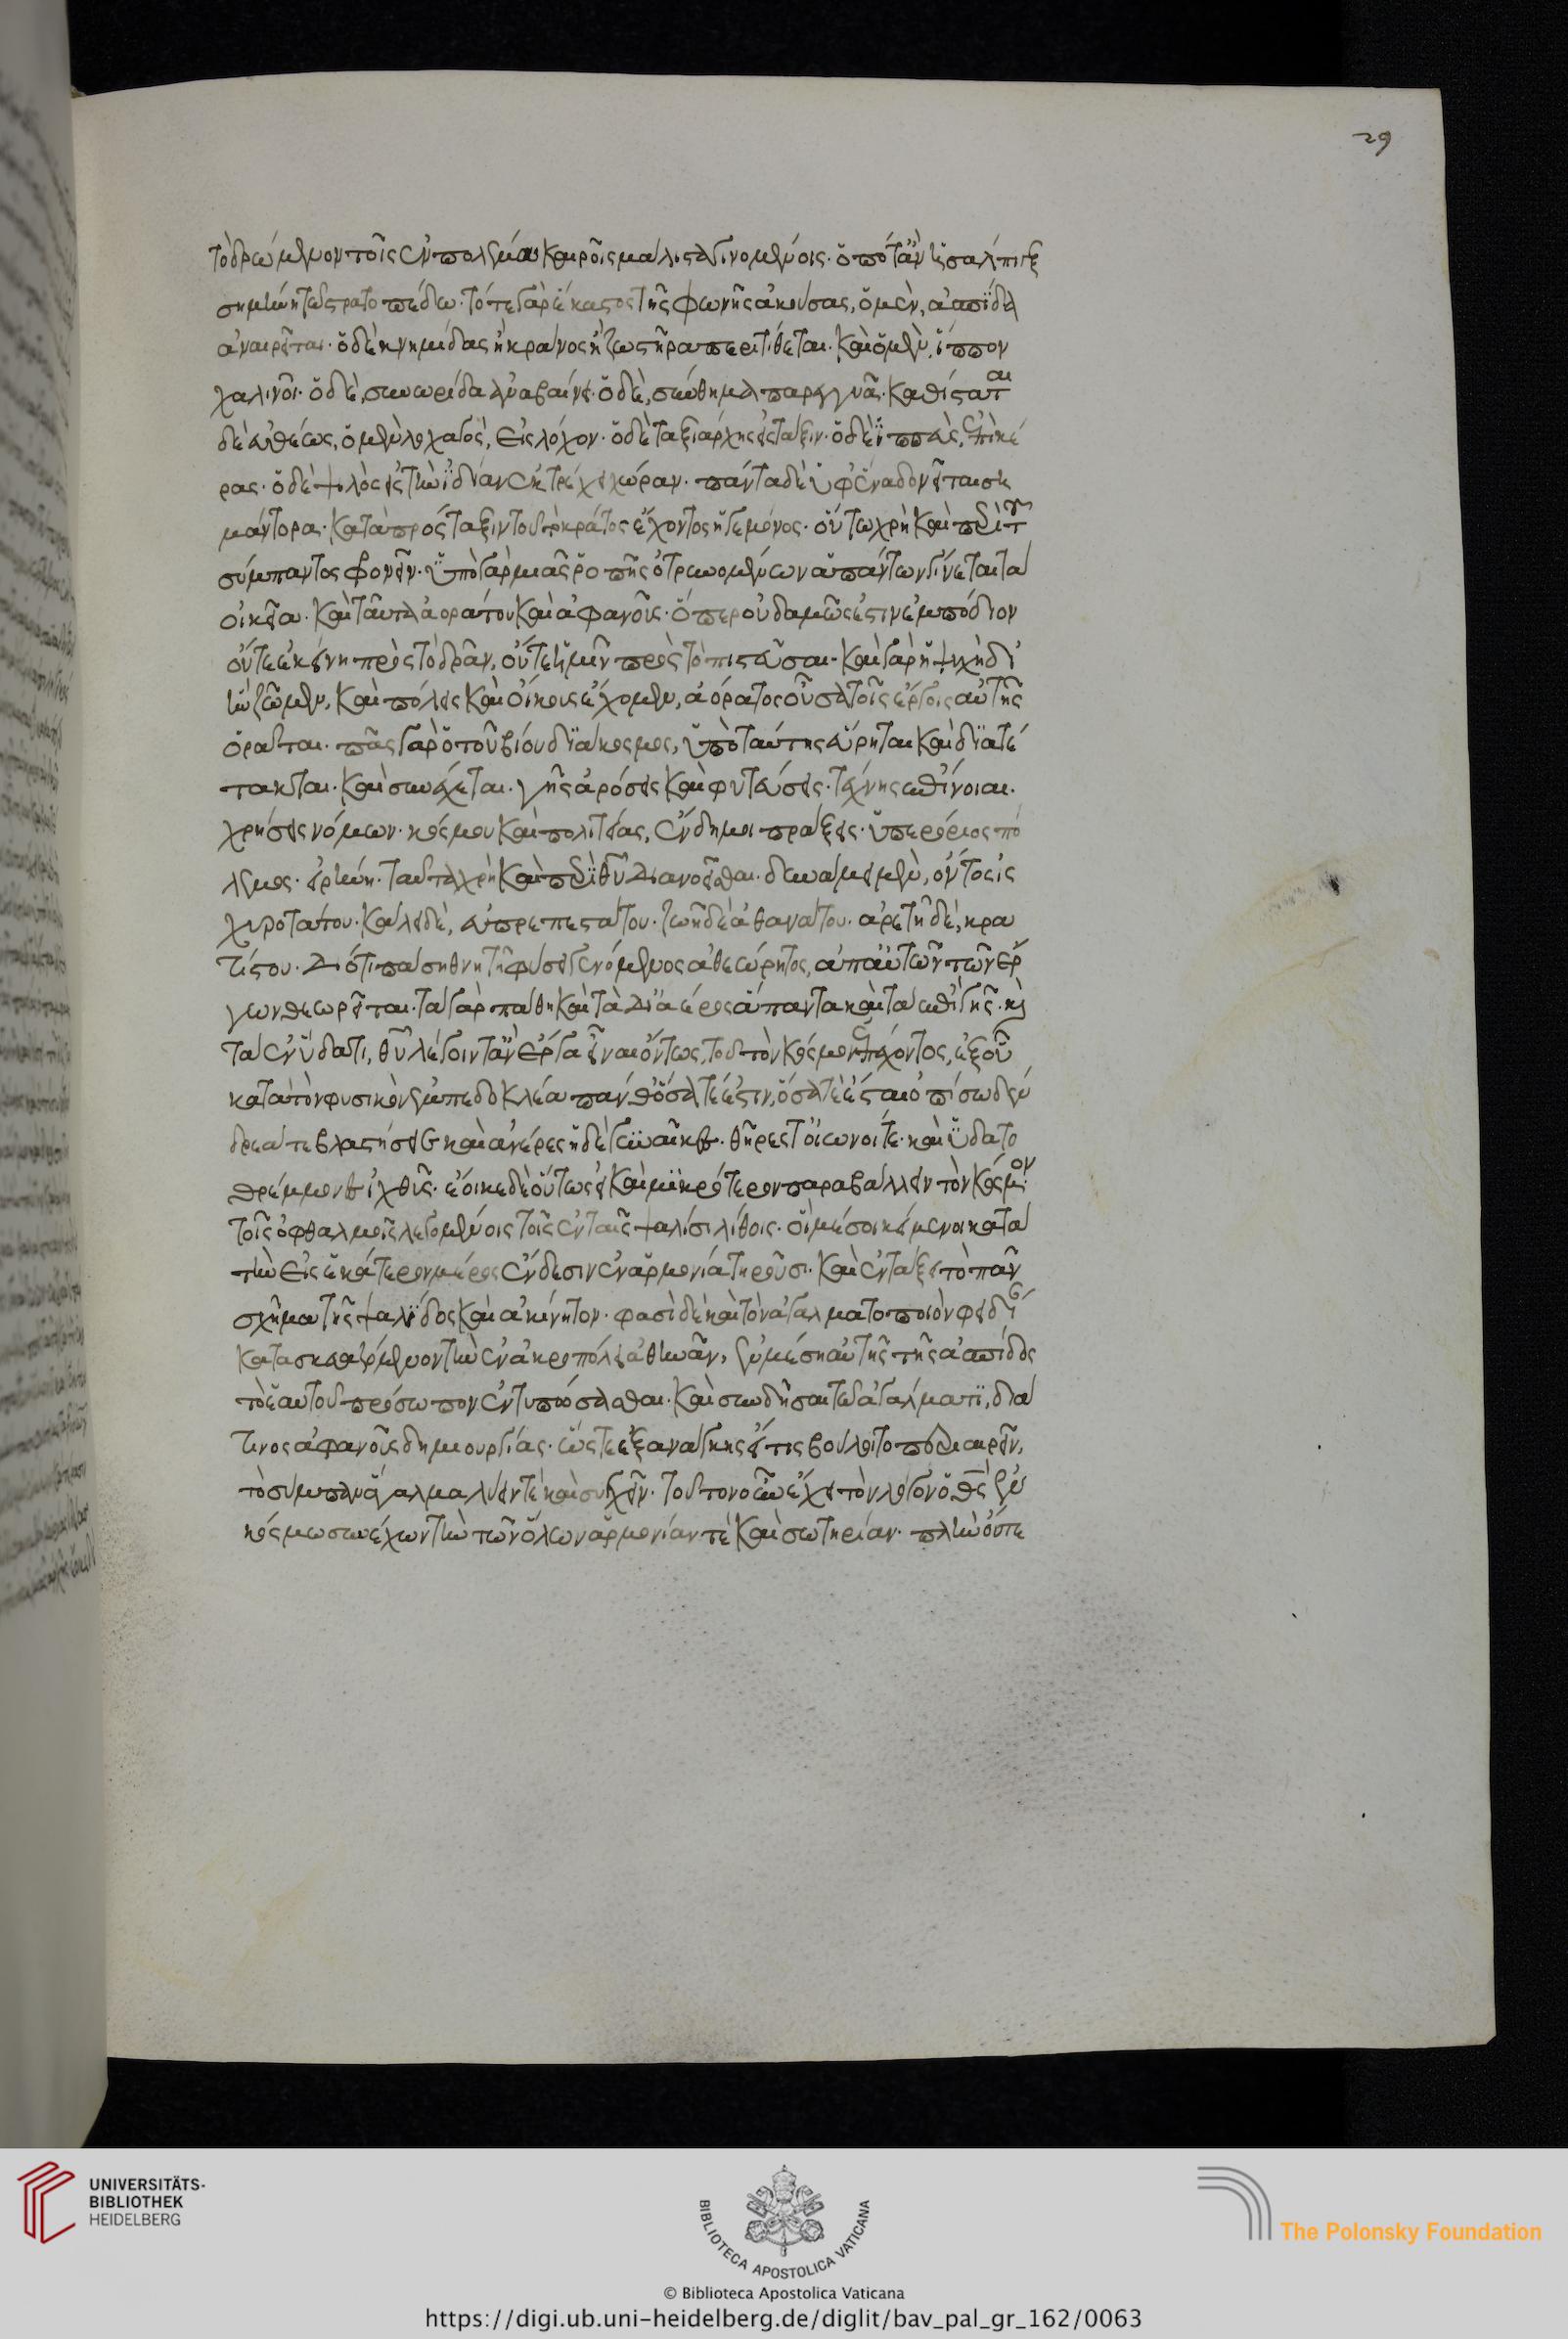 29
τὸ δρώμενον τοῖς ἐν πολέμου καιροῖς μάλιστα γινομένοις. ὁπόταν ἡ σάλπιγξ
σημήνη τῶ στρατοπέδω. τότε γὰρ ἕκαστος τῆς φωνῆς ἀκούσας, ὁ μὲν, ἀσπίδα
ἀναιρεῖται. ὁ δὲ κνημίδας ἢ κράνος ἢ ζωστῆρα περιτίθεται. καὶ ὁ μὲν, ἵππον
χαλινοῖ. ὁ δὲ, συνωρίδα ἀναβαίνει. ὁ δὲ, σύνθημα παρεγγυᾶ. καθίσταται
δὲ εὐθέως, ὁ μὲν λοχαγὸς, εἰς λόχον. ὁ δὲ ταξιάρχης εἰς τάξιν. ὁ δὲ ἱππεὺς, ἐπὶ κέ
ρας. ὁ δὲ ψιλὸς εἰς τὴν ἰδίαν ἐκτρέχει χώραν. πάντα δὲ ὑφ' ἕνα δονεῖται ση
μάντορα. κατὰ πρόσταξιν τοῦ τὸ κράτος ἔχοντος ἡγεμόνος. οὕτω χρὴ καὶ περὶ τοῦ
σύμπαντος φρονεῖν. ὑπὸ γὰρ μιᾶς ῥοπῆς ὀτρυνομένων ἁπάντων γίνεται τὰ
οἰκεῖα. καὶ ταῦτα ἀοράτου καὶ ἀφανοῦς. ὅπερ οὐδαμῶς ἐστιν ἐμπόδιον
οὔτε ἐκείνη πρὸς τὸ δρᾶν, οὔτε ἡμῖν πρὸς τὸ πιστεῦσαι. καὶ γὰρ ἡ ψυχὴ δι'
ἣν ζῶμεν, καὶ πόλεις καὶ οἴκους ἔχομεν, ἀόρατος οὖσα τοῖς ἔργοις αὐτῆς
ὁρᾶται. πᾶς γὰρ ὁ τοῦ βίου διάκοσμος, ὑπὸ ταύτης εὕρηται καὶ διατέ
τακται. καὶ συνέχεται. γῆς ἀρόσεις καὶ φυτεύσεις. τέχνης ἐπίνοιαι.
χρήσεις νόμων. κόσμου καὶ πολιτείας, ἔνδημοι πράξεις. ὑπερόριος πό
λεμος. εἰρήνη. ταῦτα χρὴ καὶ περὶ θεοῦ διανοεῖσθαι. δυνάμει μὲν, ὄντος ἰς
χυροτάτου. κάλλει δὲ, εὐπρεπεστάτου. ζωῆ δὲ ἀθανάτου. ἀρετῆ δὲ, κρα
τίστου. διότι πάση θνητῆ φύσει γενόμενος ἀθεώρητος, ἀπ' αὐτῶν τῶν ἔρ
γων θεωρεῖται. τὰ γὰρ πάθη καὶ τὰ δι' ἀέρος ἅπαντα καὶ τὰ ἐπὶ γῆς. καὶ
τὰ ἐν ὕδατι, θεοῦ λέγοιντ' ἂν ἔργα εἶναι ὄντως, τοῦ τὸν κόσμον ἐπέχοντος, ἐξ οὗ
κατὰ τὸν φυσικὸν ἐμπεδοκλέα πάνθ' ὅσα τέ ἐστιν, ὅσα τὲ ἔσται ὀπίσω δέν
δρεα τε βλάστησε καὶ ἀνέρες ἠδὲ γυναῖκες. θῆρες τ' οἰωνοί τε. καὶ ὑδατο
θρέμμονες ἰχθῦς. ἔοικε δὲ οὕτως εἰ καὶ μικρότερον παραβάλλειν τὸν κόσμον
τοῖς ὀφθαλμοῖς λεγομένοις τοῖς ἐν ταῖς ψαλίσι λίθοις. οἳ μέσοι κείμενοι κατὰ
τὴν εἰς ἑκάτερον μέρος ἔνδεσιν ἐν ἁρμονία τηροῦσι. καὶ ἐν τάξει τὸ πᾶν
σχῆμα τῆς ψαλίδος καὶ ἀκίνητον. φασὶ δὲ καὶ τὸν ἀγαλματοποιὸν φειδίαν
κατασκευαζόμενον τὴν ἐν ἀκροπόλει ἀθηνᾶν, ἐν μέση αὐτῆς τῆς ἀσπίδος
τὸ ἑαυτοῦ πρόσωπον ἐντυπώσασθαι. καὶ συνδῆσαι τῶ ἀγάλματι, διά
τινος ἀφανοῦς δημιουργίας. ὥστε ἐξ ἀνάγκης εἴ τις βούλοιτο περιαιρεῖν,
τὸ σύμπαν ἄγαλμα λύειν τὲ καὶ συγχεῖν. τοῦτον οὖν ἔχει τὸν λόγον ὁ θεὸς ἐν
κόσμω συνέχων τὴν τῶν ὅλων ἁρμονίαν τὲ καὶ σωτηρίαν. πλὴν οὔτε
UNIVERSITÄTS-
BIBLIOTHEK
HEIDELBERG
BIBLIOTECA APOSTOLICA VATICANA
The Polonsky Foundation
© Biblioteca Apostolica Vaticana
https://digi.ub.uni-heidelberg.de/diglit/bav_pal_gr_162/0063